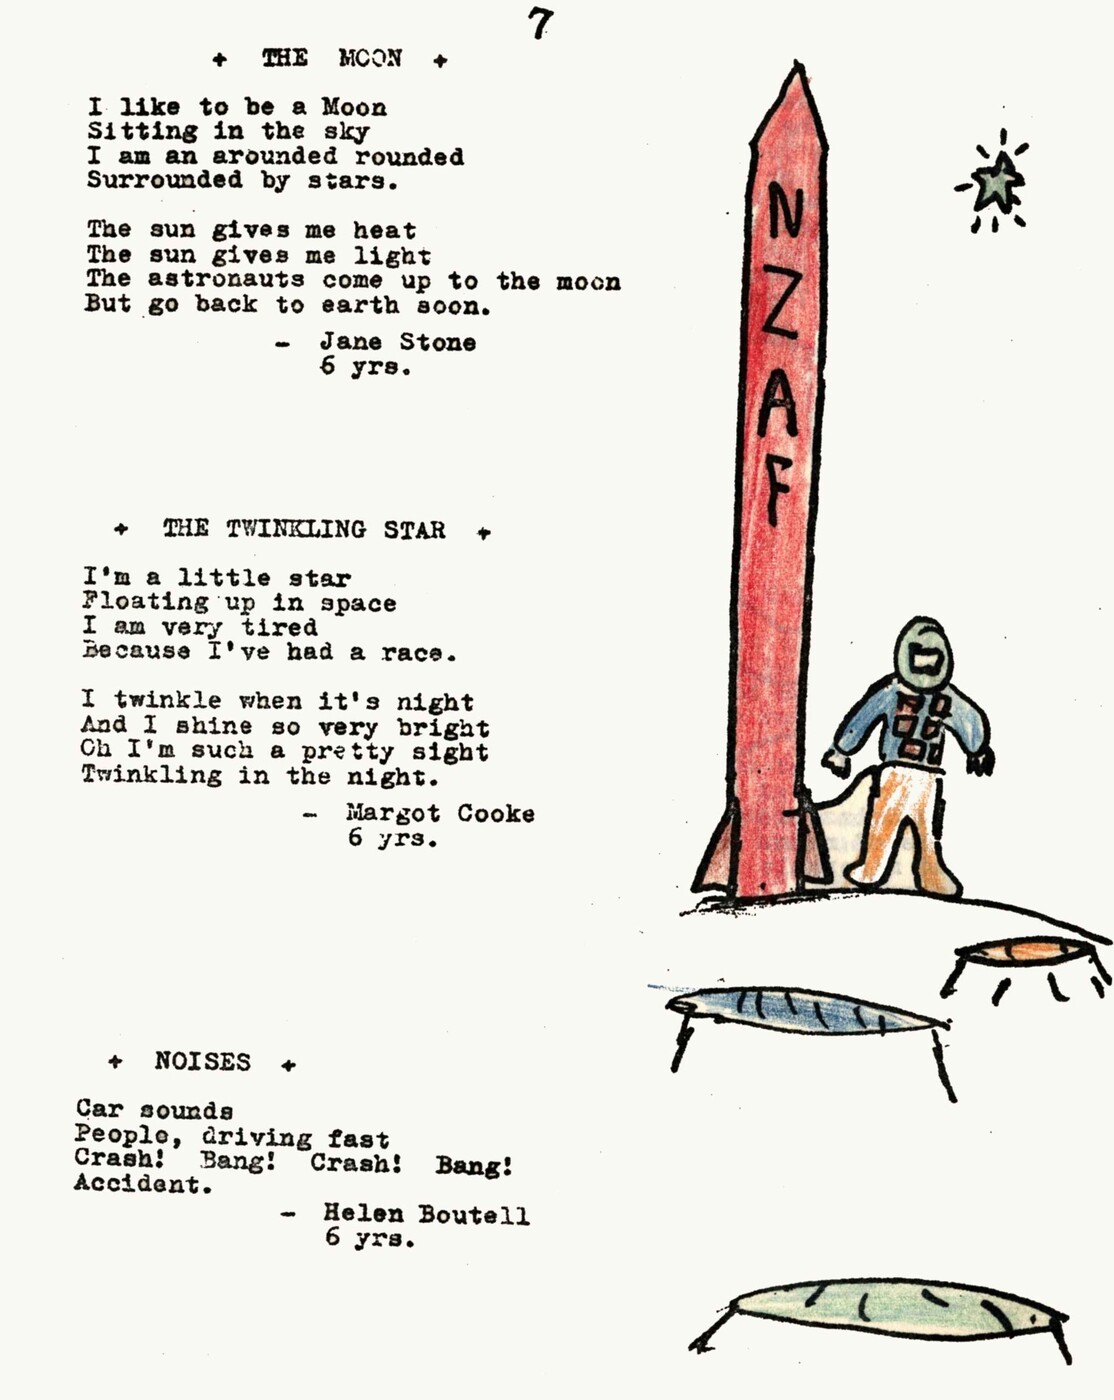 7
+ THE MOON +
I like to be a Moon
Sitting in the sky
I am an arounded rounded
Surrounded by stars.
The sun gives me heat
The sun gives me light
The astronauts come up to the moon
But go back to earth soon.
- Jane Stone
6 yrs.
+ THE TWINKLING STAR +
I'm a little star
Floating up in space
I am very tired
Because I've had a race.
I twinkle when it's night
And I shine so very bright
Oh I'm such a pretty sight
Twinkling in the night.
- Margot Cooke
6 yrs.
+ NOISES +
Car sounds
People, driving fast
Crash! Bang! Crash! Bang!
Accident.
- Helen Boutell
6 yrs.
N
Z
A
F